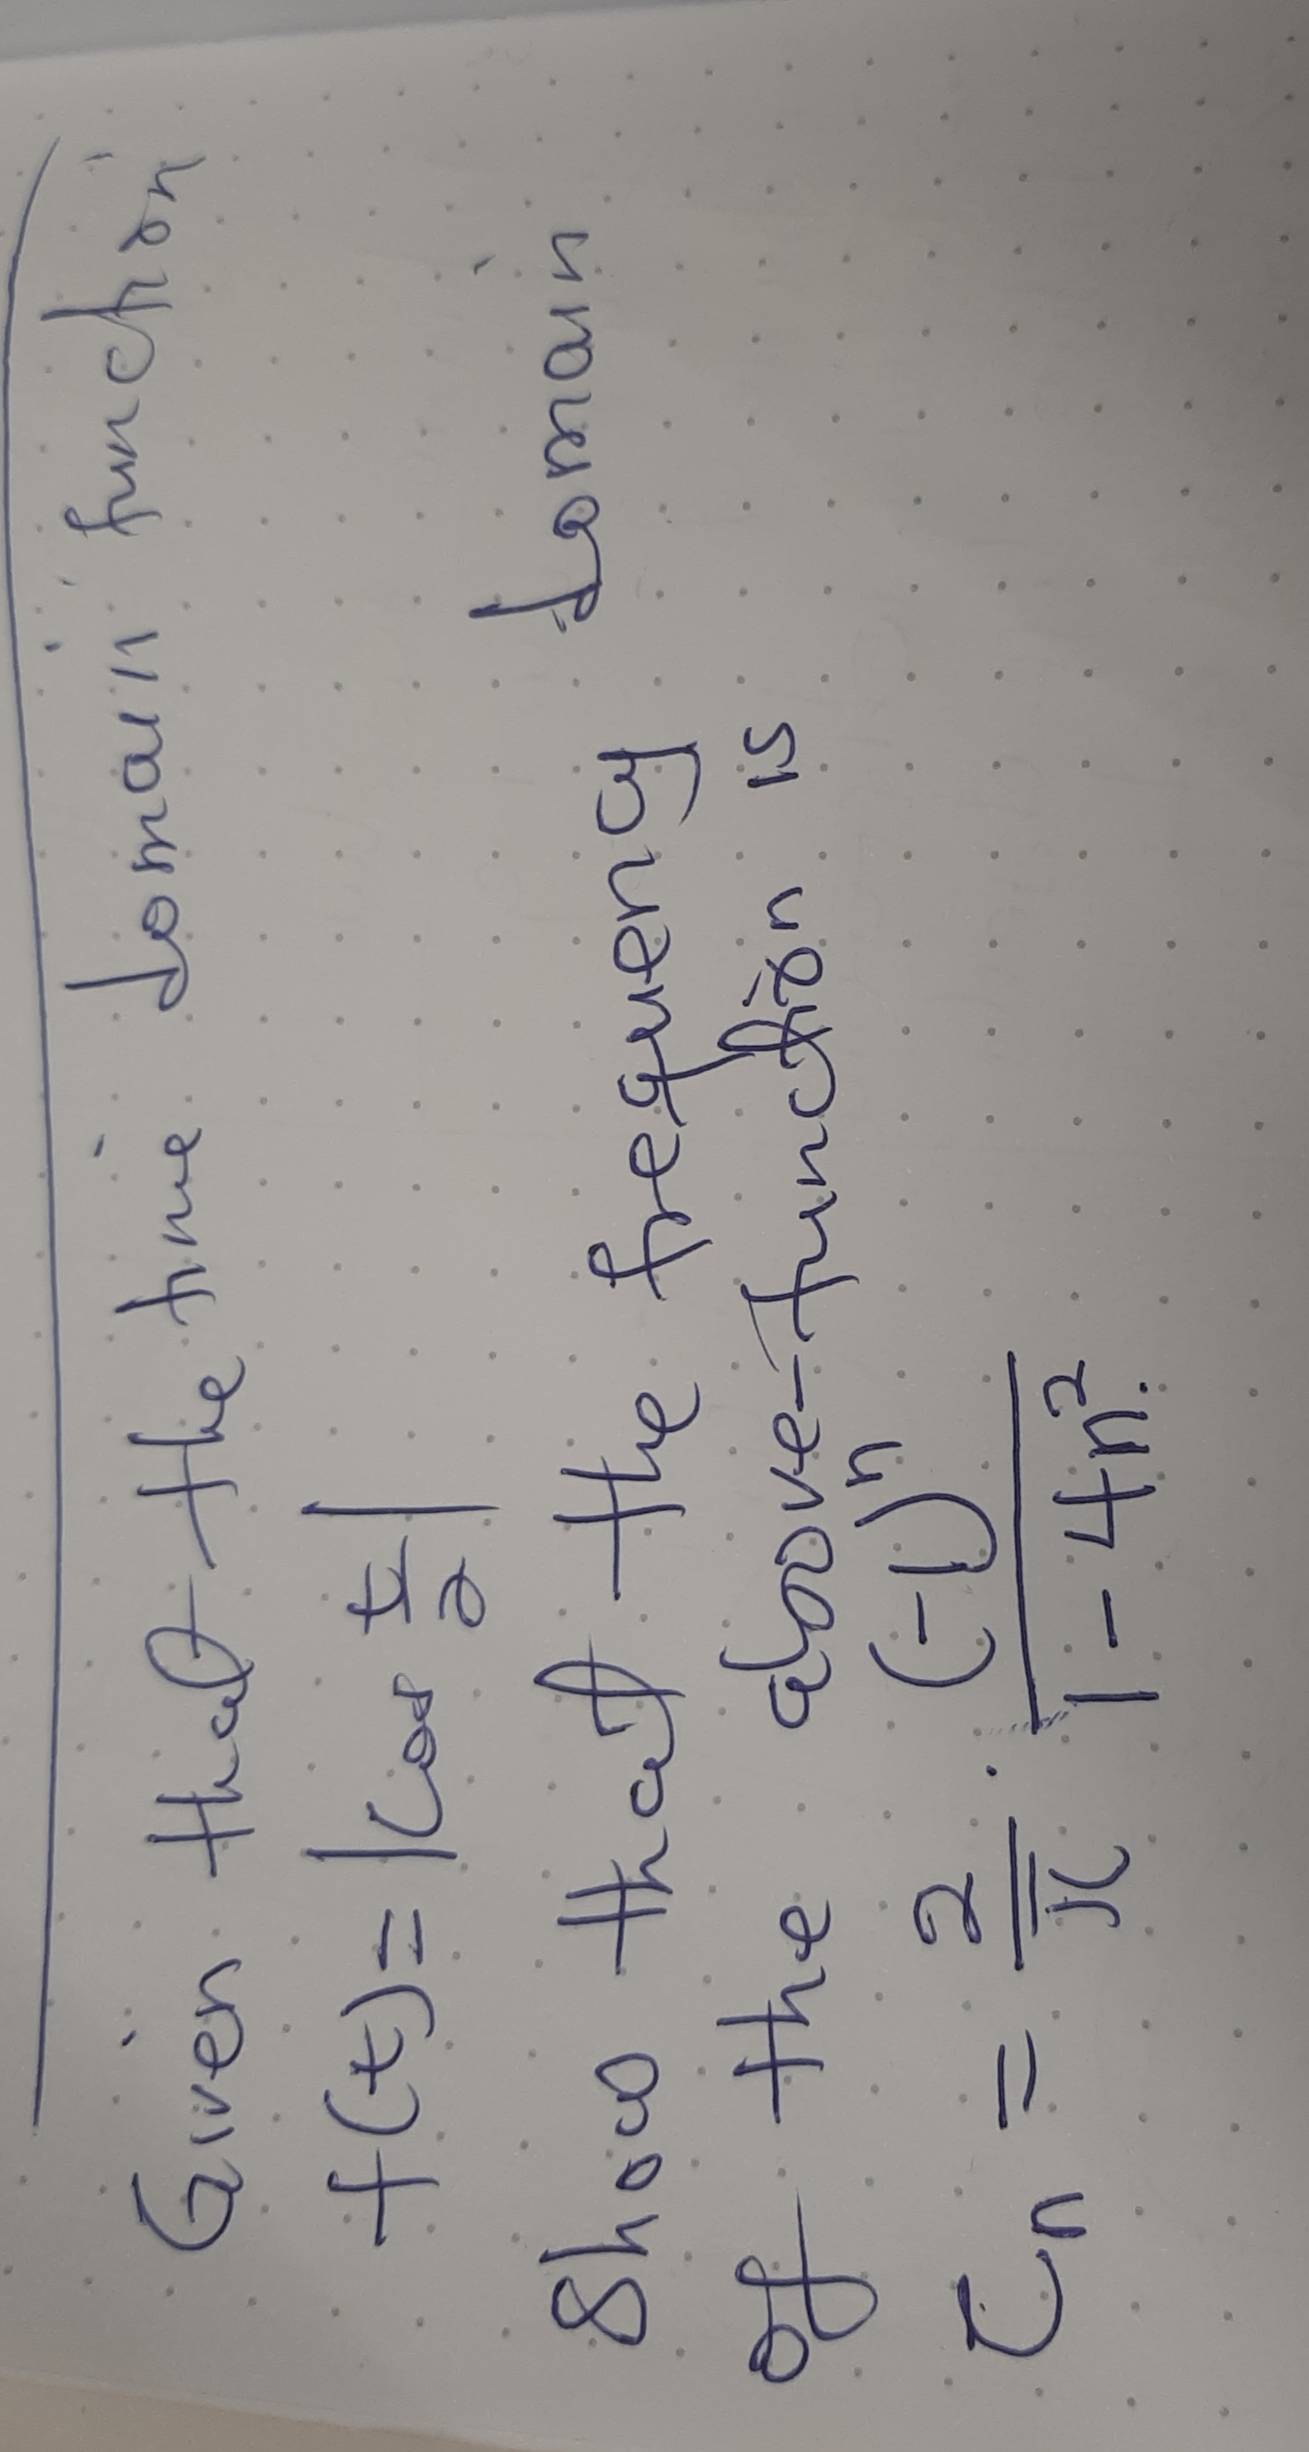 Given that the time domain function
f(t) = |Cos t/2|
Show that the frequency domain
of the above function is
Cn = 2/π · (-1)^n / 1 - 4n².